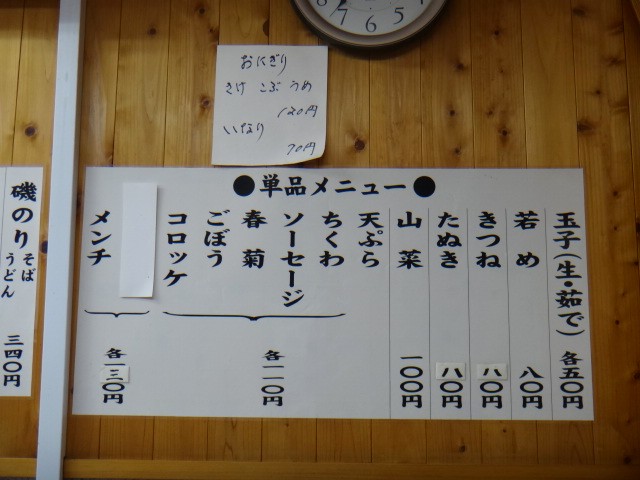 7 6 5
おにぎり
さけ こぶ うめ
120円
いなり
70円
●単品メニュー●
玉子(生・茹で) 各五〇円
若め 八〇円
きつね 八〇円
たぬき 八〇円
山菜 一〇〇円
天ぷら
ちくわ
ソーセージ
春菊
ごぼう
コロッケ
各一一〇円
メンチ
各一三〇円
磯のり そば うどん 三四〇円